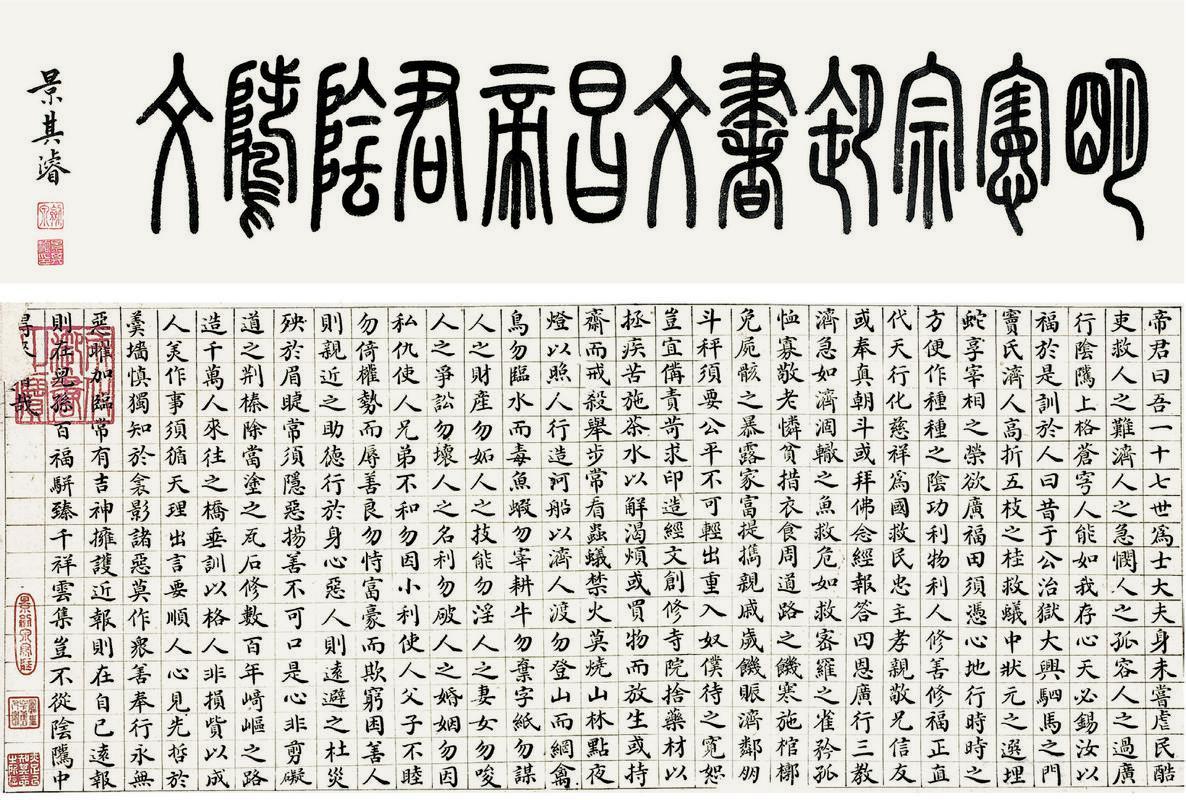 明憲宗御書文昌帝君陰騭文
景其濬
帝君曰吾一十七世爲士大夫身未嘗虐民酷
吏救人之難濟人之急憫人之孤容人之過廣
行陰騭上格蒼穹人能如我存心天必錫汝以
福於是訓於人曰昔于公治獄大興駟馬之門
竇氏濟人高折五枝之桂救蟻中狀元之選埋
蛇享宰相之榮欲廣福田須憑心地行時時之
方便作種種之陰功利物利人修善修福正直
代天行化慈祥爲國救民忠主孝親敬兄信友
或奉真朝斗或拜佛念經報答四恩廣行三教
濟急如濟涸轍之魚救危如救密羅之雀矜孤
恤寡敬老憐貧措衣食周道路之饑寒施棺槨
免屍骸之暴露家富提攜親戚歲饑賑濟鄰朋
斗秤須要公平不可輕出重入奴僕待之寬恕
豈宜備責苛求印造經文創修寺院捨藥材以
拯疾苦施茶水以解渴煩或買物而放生或持
齋而戒殺舉步常看蟲蟻禁火莫燒山林點夜
燈以照人行造河船以濟人渡勿登山而網禽
鳥勿臨水而毒魚蝦勿宰耕牛勿棄字紙勿謀
人之財產勿妬人之技能勿淫人之妻女勿唆
人之爭訟勿壞人之名利勿破人之婚姻勿因
私仇使人兄弟不和勿因小利使人父子不睦
勿倚權勢而辱善良勿恃富豪而欺窮困善人
則親近之助德行於身心惡人則遠避之杜災
殃於眉睫常須隱惡揚善不可口是心非剪礙
道之荆榛除當塗之瓦石修數百年崎嶇之路
造千萬人來往之橋垂訓以格人非損貲以成
人美作事須循天理出言要順人心見先哲於
羹墻慎獨知於衾影諸惡莫作衆善奉行永無
惡曜加臨常有吉神擁護近報則在自己遠報
則在兒孫百福駢臻千祥雲集豈不從陰騭中
得來哉